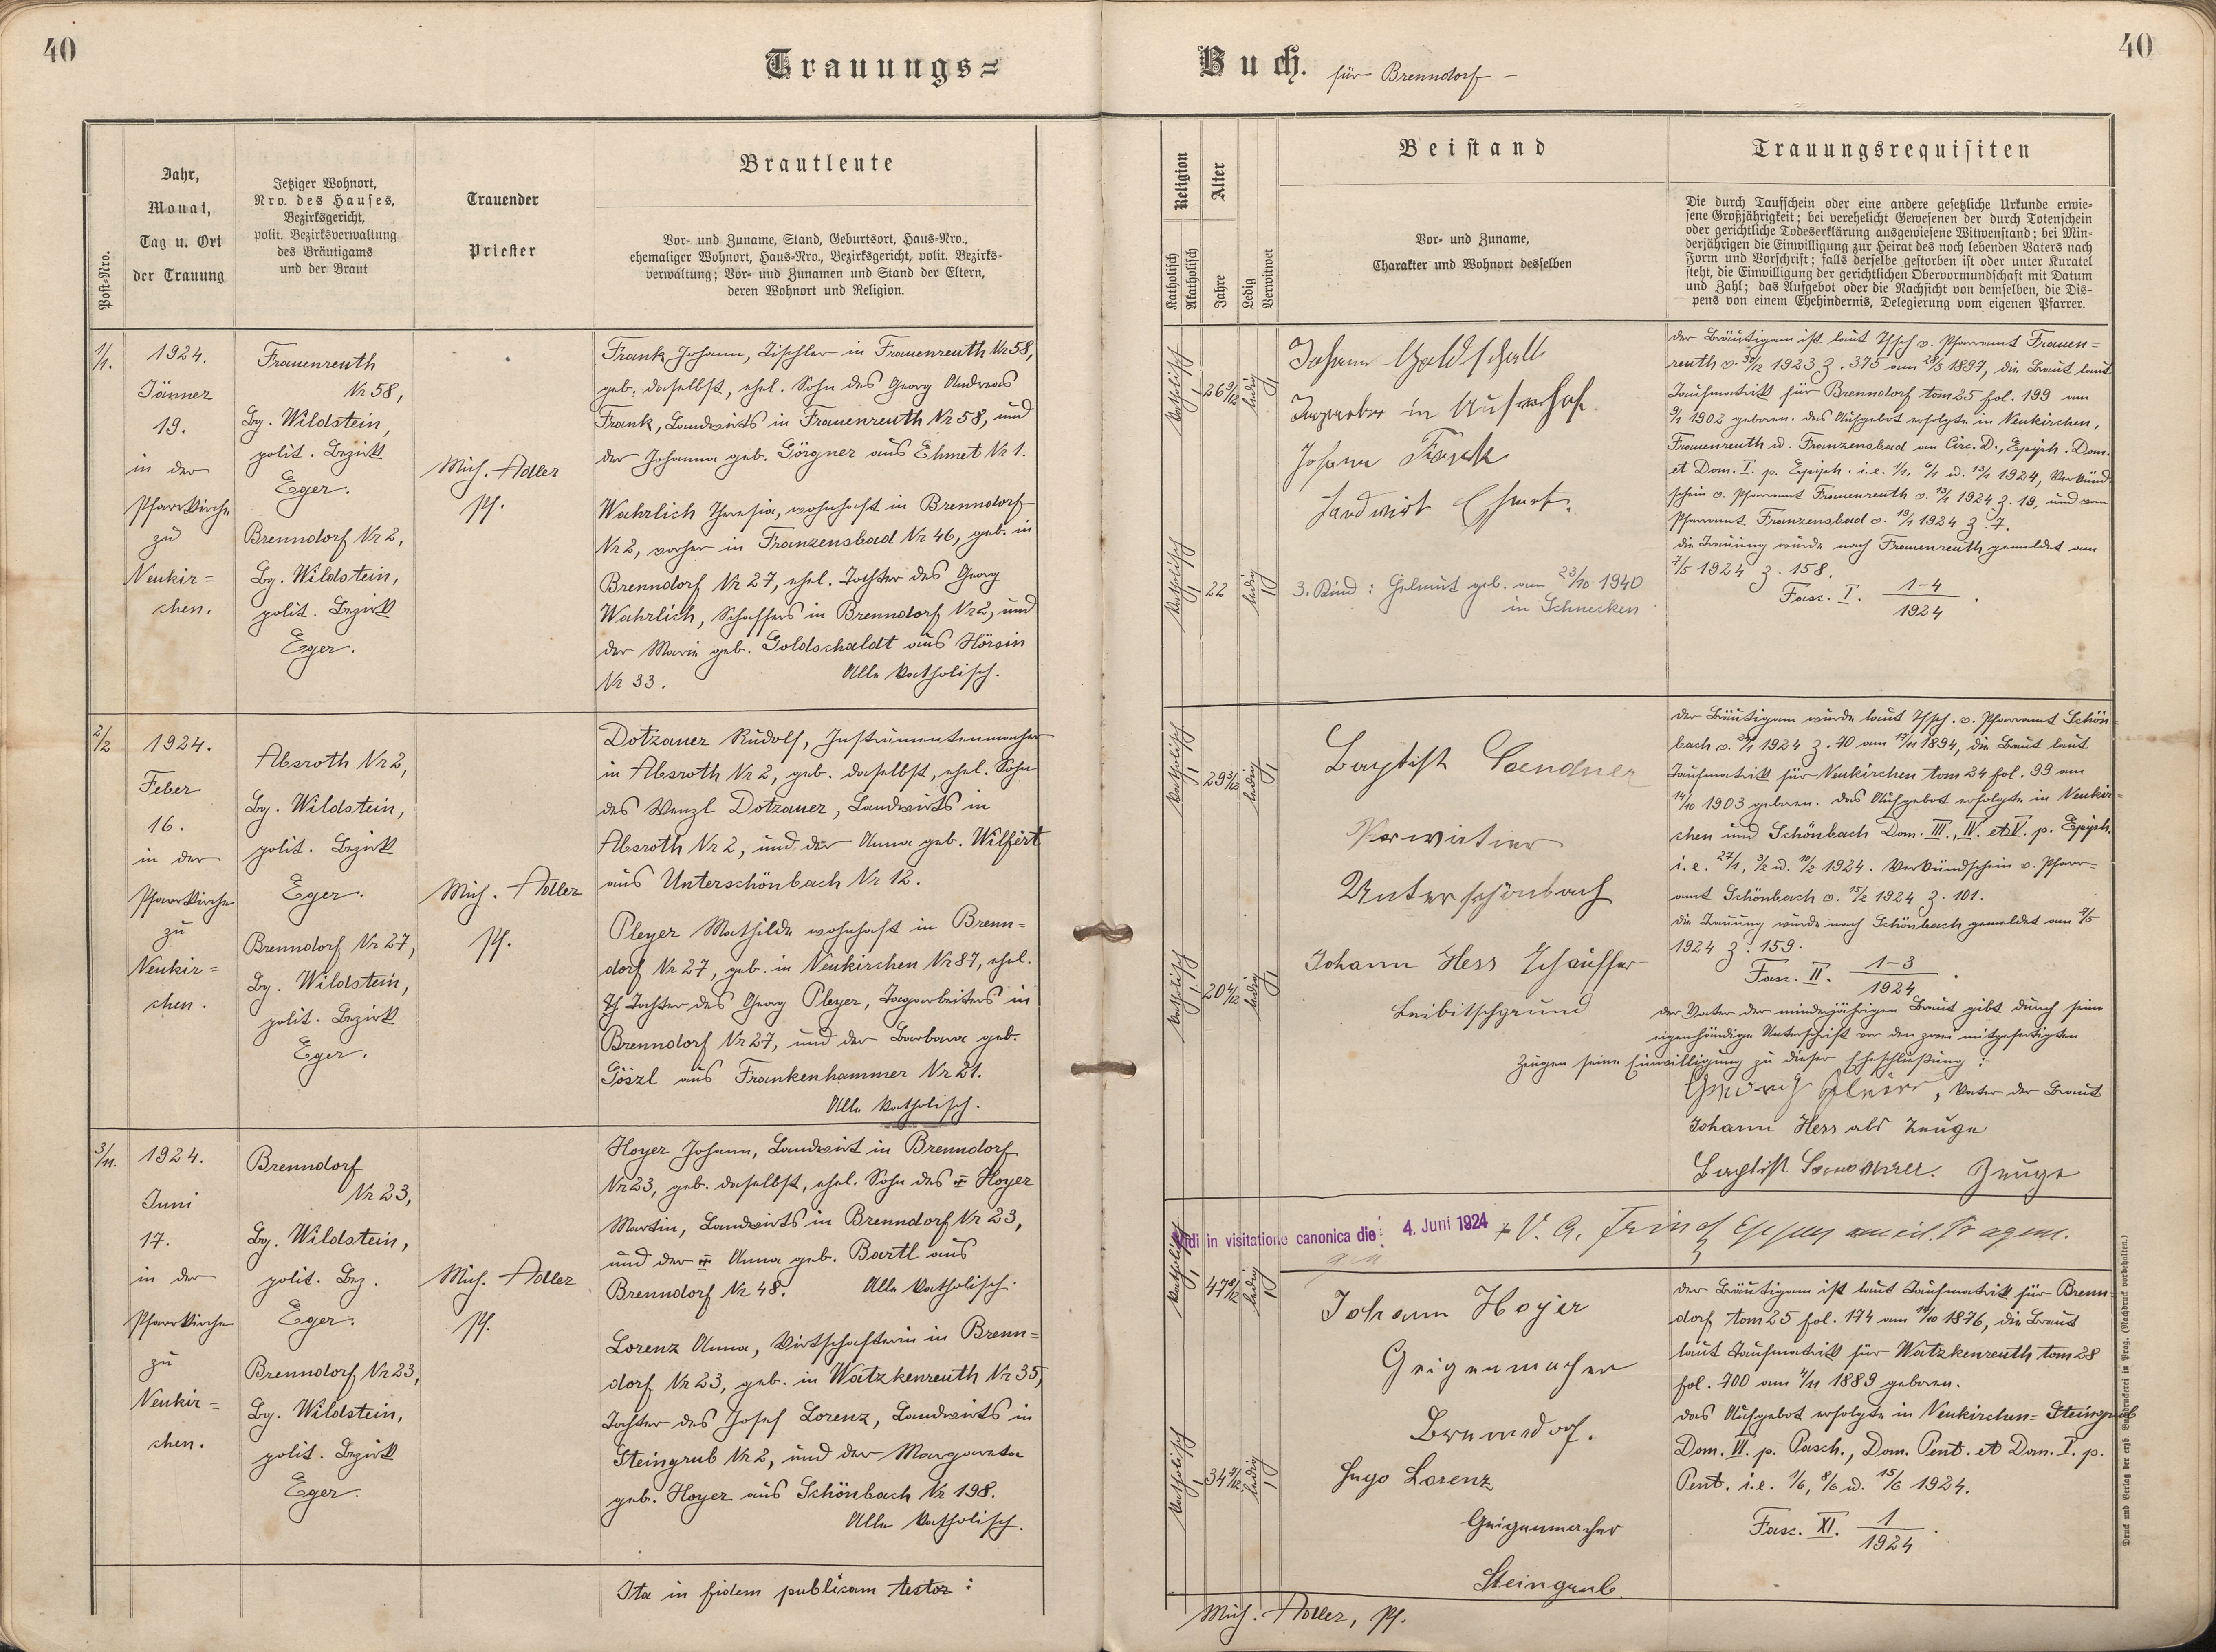 40
Trauungs=
Buch. für Brenndorf –
40
Post-Nro.
Jahr,
Monat,
Tag u. Ort
der Trauung
Jetziger Wohnort,
Nro. des Hauses,
Bezirksgericht,
polit. Bezirksverwaltung
des Bräutigams
und der Braut
Trauender
Priester
Brautleute
Vor- und Zuname, Stand, Geburtsort, Haus-Nro.,
ehemaliger Wohnort, Haus-Nro., Bezirksgericht, polit. Bezirks-
verwaltung; Vor- und Zunamen und Stand der Eltern,
deren Wohnort und Religion.
Religion
Katholisch
Akatholisch
Alter
Jahre
Ledig
Verwitwet
Beistand
Vor- und Zuname,
Charakter und Wohnort desselben
Trauungsrequisiten
Die durch Taufschein oder eine andere gesetzliche Urkunde erwie-
sene Großjährigkeit; bei verehelicht Gewesenen der durch Totenschein
oder gerichtliche Todeserklärung ausgewiesene Witwenstand; bei Min-
derjährigen die Einwilligung zur Heirat des noch lebenden Vaters nach
Form und Vorschrift; falls derselbe gestorben ist oder unter Kuratel
steht, die Einwilligung der gerichtlichen Obervormundschaft mit Datum
und Zahl; das Aufgebot oder die Nachsicht von demselben, die Dis-
pens von einem Ehehindernis, Delegierung vom eigenen Pfarrer.
1/1.
1924.
Jänner
19.
in der
Pfarrkirche
zu
Neukir=
chen.
Frauenreuth
Nr 58,
Bg. Wildstein,
polit. Bezirk
Eger.
Brenndorf Nr 2,
Bg. Wildstein,
polit. Bezirk
Eger.
Mich. Adler
Pf.
Frank Johann, Tischler in Frauenreuth Nr 58,
geb. daselbst, ehel. Sohn des Georg Andreas
Frank, Landwirts in Frauenreuth Nr 58, und
der Johanna geb. Görgner aus Ehmet Nr 1.
Wahrlich Theresia, wohnhaft in Brenndorf
Nr 2, vorher in Franzensbad Nr 46, geb. in
Brenndorf Nr 27, ehel. Tochter des Georg
Wahrlich, Schaffers in Brenndorf Nr 2, und
der Marie geb. Goldschaldt aus Hörsin
Nr 33. Alle katholisch.
katholisch
1
26 9/12
ledig
1
katholisch
1
22
ledig
1
Johann Goldschalt
in
Johann Frank
Landwirt Ehmet.
3. Kind: Helmut geb. am 23/10 1940
in Schnecken
Der Bräutigam ist laut Tfsch v. Pfarramt Frauen=
reuth v. 30/12 1923 Z. 375 am 28/3 1897, die Braut laut
Taufmatrik für Brenndorf tom 25 fol. 199 am
9/1 1902 geboren. Das Aufgebot erfolgte in Neukirchen,
Frauenreuth u. Franzensbad am Circ. D., Epiph. Dom.
et Dom. I. p. Epiph. i.e. 1/1, 6/1 u. 13/1 1924, Verkünd=
schein v. Pfarramt Frauenreuth v. 13/1 1924 Z. 19, und vom
Pfarramt Franzensbad v. 19/1 1924 Z. 7.
Die Trauung wurde nach Frauenreuth gemeldet am
7/5 1924 Z. 158.
Fasc. I. 1–4
1924
2/2
1924.
Feber
16.
in der
Pfarrkirche
zu
Neukir=
chen.
Absroth Nr 2,
Bg. Wildstein,
polit. Bezirk
Eger.
Brenndorf Nr 27,
Bg. Wildstein,
polit. Bezirk
Eger.
Mich. Adler
Pf.
Dotzauer Rudolf, Instrumentenmacher
in Absroth Nr 2, geb. daselbst, ehel. Sohn
des Wenzl Dotzauer, Landwirts in
Absroth Nr 2, und der Anna geb. Wilfert
aus Unterschönbach Nr 12.
Pleyer Mathilde wohnhaft in Brenn=
dorf Nr 27, geb. in Neukirchen Nr 87, ehel.
Tochter des Georg Pleyer, Tagarbeiters in
Brenndorf Nr 27, und der Barbara geb.
Göszl aus Frankenhammer Nr 21.
Alle katholisch.
katholisch
1
29 3/12
ledig
1
katholisch
1
20 4/12
ledig
1
Baptist Sandner
Unterschönbach
Johann Hess Schauffer
Leibitschgrund
Der Bräutigam wurde laut Tfsch. v. Pfarramt Schön=
bach v. 1924 Z. 70 am 17/11 1894, die Braut laut
Taufmatrik für Neukirchen tom 24 fol. 99 am
14/10 1903 geboren. Das Aufgebot erfolgte in Neukir=
chen und Schönbach Dom. III., IV. et V. p. Epiph.
i.e. 27/1, 3/2 u. 10/2 1924. Verkündschein v. Pfarr=
amt Schönbach v. 15/2 1924 Z. 101.
Die Trauung wurde nach Schönbach gemeldet am 7/5
1924 Z. 159.
Fasc. II. 1–3
1924
Der Vater der minderjährigen Braut gibt durch seine
eigenhändige Unterschrift vor den zwei mitgefertigten
Zeugen seine Einwilligung zu dieser Eheschließung:
, Vater der Braut
Johann Hess als Zeuge
Baptist Sandner. Zeuge
Vidi in visitatione canonica die: 4. Juni 1924
3/11.
1924.
Juni
17.
in der
Pfarrkirche
zu
Neukir=
chen.
Brenndorf
Nr 23,
Bg. Wildstein,
polit. Bez.
Eger.
Brenndorf Nr 23,
Bg. Wildstein,
polit. Bezirk
Eger.
Mich. Adler
Pf.
Hoyer Johann, Landwirt in Brenndorf
Nr 23, geb. daselbst, ehel. Sohn des Hoyer
Martin, Landwirts in Brenndorf Nr 23,
und der Anna geb. Bartl aus
Brenndorf Nr 48. Alle katholisch.
Lorenz Anna, Wirtschafterin in Brenn=
dorf Nr 23, geb. in Watzkenreuth Nr 35,
Tochter des Josef Lorenz, Landwirts in
Steingrub Nr 2, und der Margareta
geb. Hoyer aus Schönbach Nr 198.
Alle katholisch.
katholisch
1
47 8/12
ledig
1
katholisch
1
34 7/12
ledig
1
Johann Hoyer
Geigenmacher
Brenndorf.
Hugo Lorenz
Geigenmacher
Steingrub.
Der Bräutigam ist laut Taufmatrik für Brenn=
dorf tom 25 fol. 174 am 1876, die Braut
laut Taufmatrik für Watzkenreuth tom 28
fol. 700 am 4/11 1889 geboren.
Das Aufgebot erfolgte in Neukirchen=Steingrub
Dom. VI. p. Pasch., Dom. Pent. et Dom. I. p.
Pent. i.e. 1/6, 8/6 u. 15/6 1924.
Fasc. XI. 1
1924
Ita in fidem publicam testor:
Mich. Adler, Pf.
Druck und Verlag der erzb. Buchdruckerei in Prag. (Nachdruck vorbehalten.)